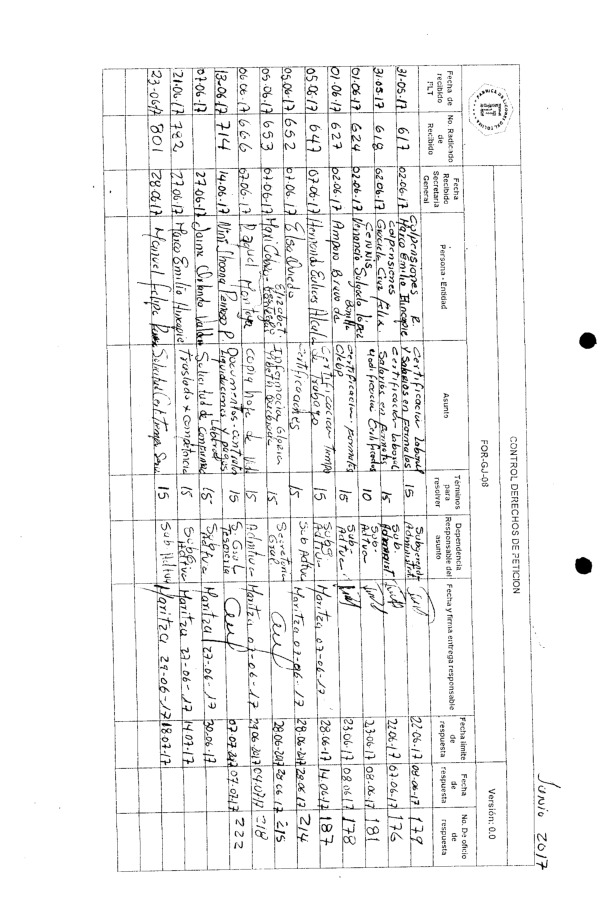 Junio 2017
FABRICA DE LICORES DEL TOLIMA
CONTROL DERECHOS DE PETICION
FOR-GJ-08
Versión: 0.0
Fecha de recibido FLT
No. Radicado de Recibido
Fecha Recibido Secretaria General
Persona - Entidad
Asunto
Términos para resolver
Dependencia Responsable del asunto
Fecha y firma entrega responsable
Fecha limite de respuesta
Fecha de respuesta
No. De oficio de respuesta
31-05-17 617 02-06-17 Colpensiones R. Marco Emilio Hincapie Certificacion laboral y Salarios en formatos 15 Subgerente Administrat 22-06-17 08-06-17 179
31-05-17 618 02-06-17 Colpensiones Graciela Cruz Felix Certificacion laboral Salarios en formatos 15 Sub. Administ 22-06-17 07-06-17 176
01-06-17 624 02-06-17 Venancio Salgado Lopez Modificacion Certificados 10 Sub. Adtiva 23-06-17 08-06-17 181
01-06-17 627 02-06-17 Amparo Bravo de Bonilla Certificacion formatos 15 Sub. Adtiva 23-06-17 08-06-17 178
05-06-17 647 07-06-17 Armando Eulices Alcala Certificacion tiempo de trabajo 15 Subg Adtiva Maritza 07-06-17 28-06-17 14-06-17 187
05-06-17 652 07-06-17 Elsa Oviedo Certificaciones 15 Sub Adtva Maritza 07-06-17 28-06-2017 28-06-17 214
05-06-17 653 07-06-17 Elizabet Informacion Gloria 15 Secretaria Gral 28-06-2017 28-06-17 215
06-06-17 666 07-06-17 Raquel Montoya Copia hoja de vida 15 Admitiva Maritza 07-06-17 29-06-2017 04-07-17 218
13-06-17 714 14-06-17 Documentos - contrato liquidacion y pagos 15 S. Gral Tesoreria 07-07-2017 07-07-17 222
07-06-17 27-06-17 Jaime Orlando Solicitud de 15 Subg Adtva Maritza 27-06-17 30-06-17
21-06-17 782 27-06-17 Marco Emilio Hincapie Traslado x competencia 15 Subg Adtiva Maritza 27-06-17 14-07-17
23-06-17 801 28-06-17 Manuel Felipe Solicitud Cert. tiempo 15 Sub Adtiva Maritza 29-06-17 18-07-17